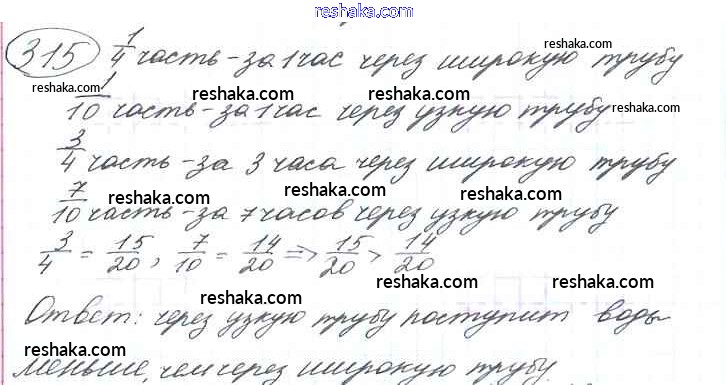 reshaka.com
315 1/4 часть - за 1 час через широкую трубу
reshaka.com reshaka.com
reshaka.com reshaka.com reshaka.com
1/10 часть - за 1 час через узкую трубу
reshaka.com reshaka.com
3/4 часть - за 3 часа через широкую трубу
reshaka.com reshaka.com
7/10 часть - за 7 часов через узкую трубу
3/4 = 15/20, 7/10 = 14/20 => 15/20 > 14/20
reshaka.com reshaka.com
reshaka.com
Ответ: через узкую трубу поступит воды
reshaka.com reshaka.com
меньше, чем через широкую трубу
reshaka.com